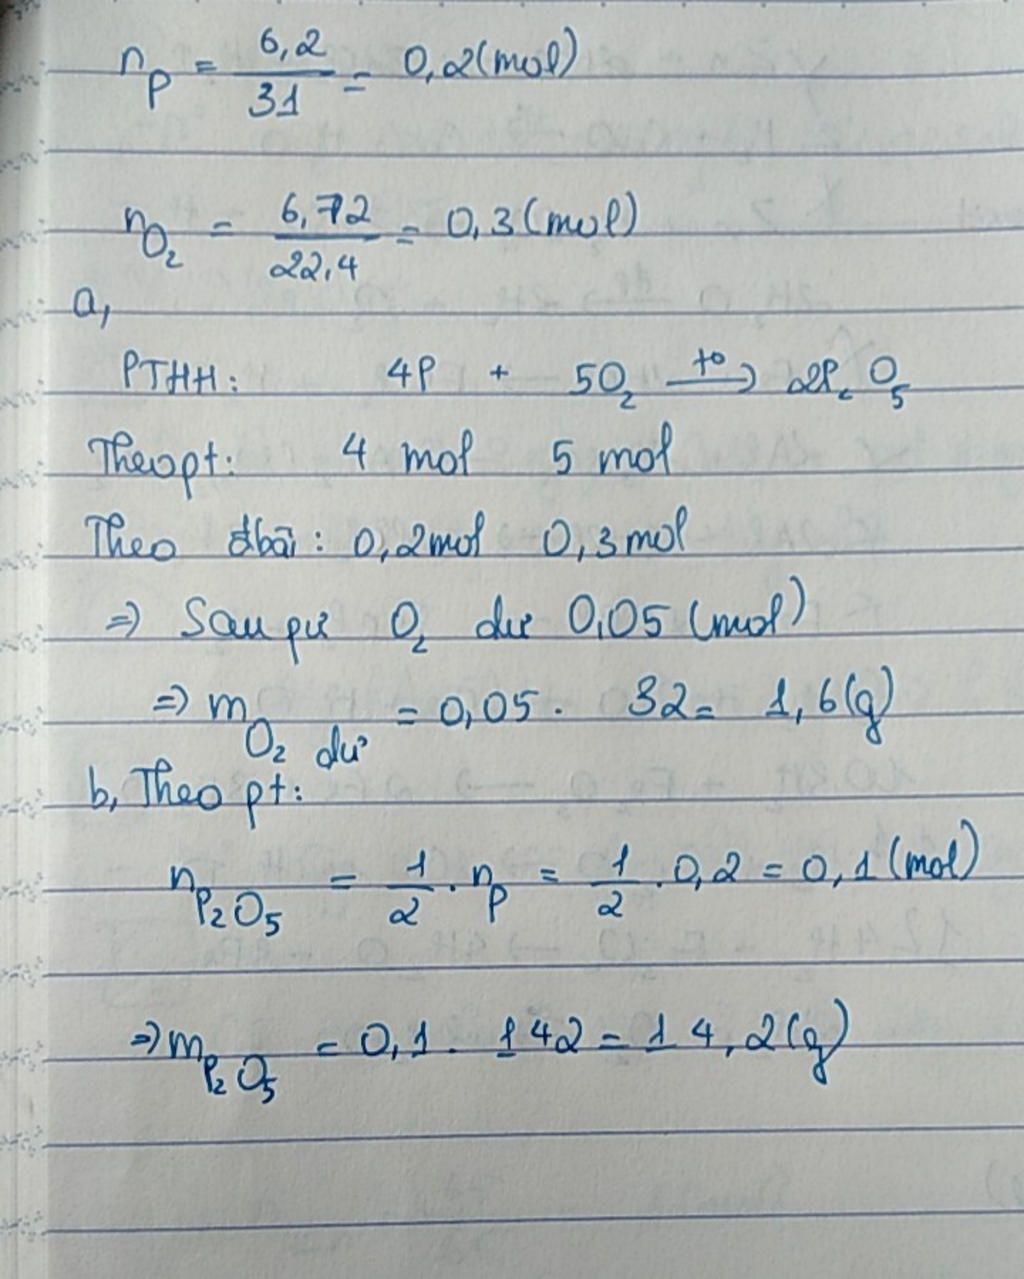 n_P = 6,2/31 = 0,2(mol)
n_O₂ = 6,72/22,4 = 0,3(mol)
a,
PTHH: 4P + 5O₂ →(t°) 2P₂O₅
Theo pt: 4 mol 5 mol
Theo đbài: 0,2mol 0,3mol
=> Sau pư O₂ dư 0,05 (mol)
=> m_O₂ dư = 0,05 . 32 = 1,6(g)
b, Theo pt:
n_P₂O₅ = 1/2 . n_P = 1/2 . 0,2 = 0,1(mol)
=> m_P₂O₅ = 0,1 . 142 = 14,2(g)